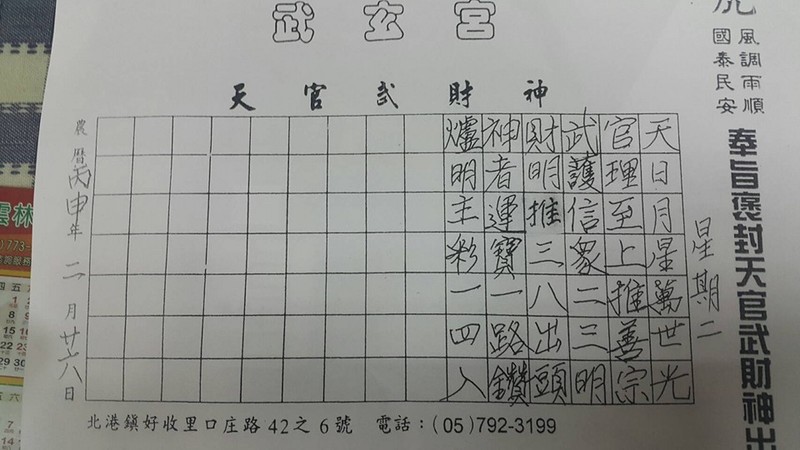 武玄宮
天官武財神
風調雨順
國泰民安
奉旨褒封天官武財神出
星期二
天日月星萬世光
官理至上推善宗
武護信眾二三明
財明推三八出頭
神者運寶一路鑽
爐明主彩一四入
農曆丙申年二月廿六日
北港鎮好收里口庄路42之6號 電話：(05)792-3199
雲林
)773-